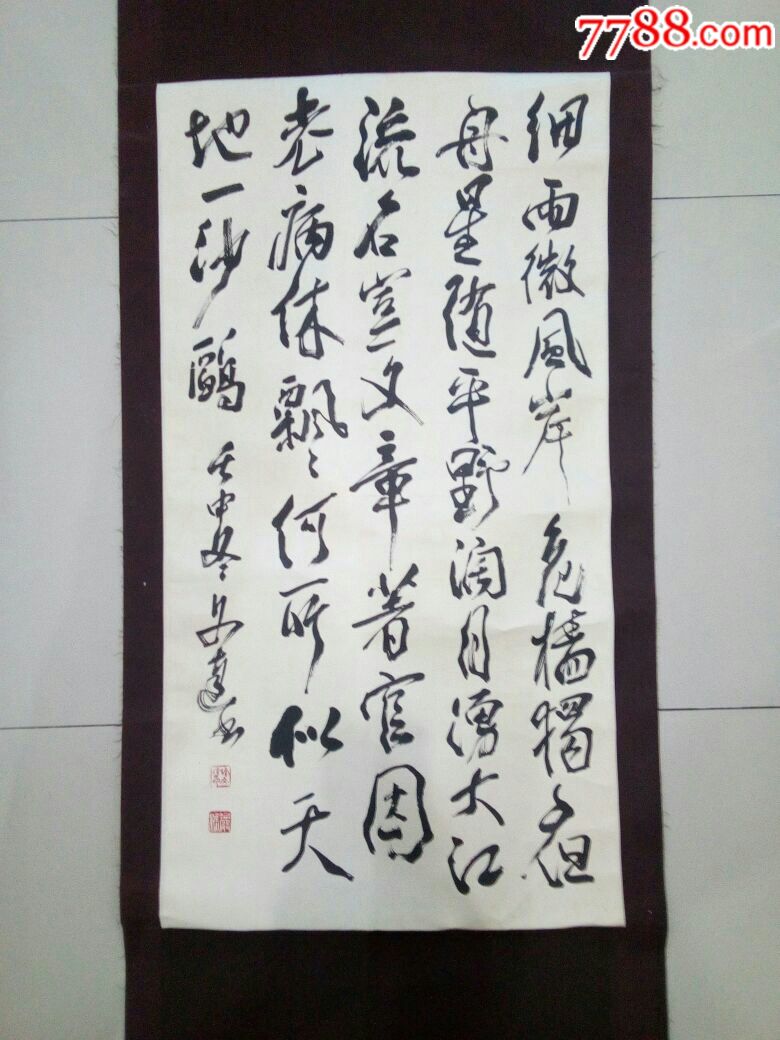 7788.com
細雨微風岸危樯獨夜
舟星随平野濶月湧大江
流名豈文章著官因
老病休飄〻何所似天
地一沙鷗 壬申冬文達书